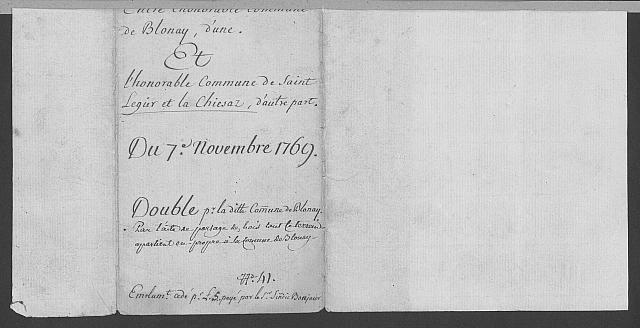 Entre l'honorable Commune
de Blonay, d'une.
Et
l'honorable Commune de Saint
Legier et la Chiesaz, d'autre part.
Du 7.e Novembre 1769.
Double p.r la ditte Comune de Blonay.
Par l'acte de partage des bois tout le terrain
apartient en propre à la Comune de Blonay
N.o 41.
Emolum.t cédé p.r L. 5, payé par le S.r Sindic Bonjour